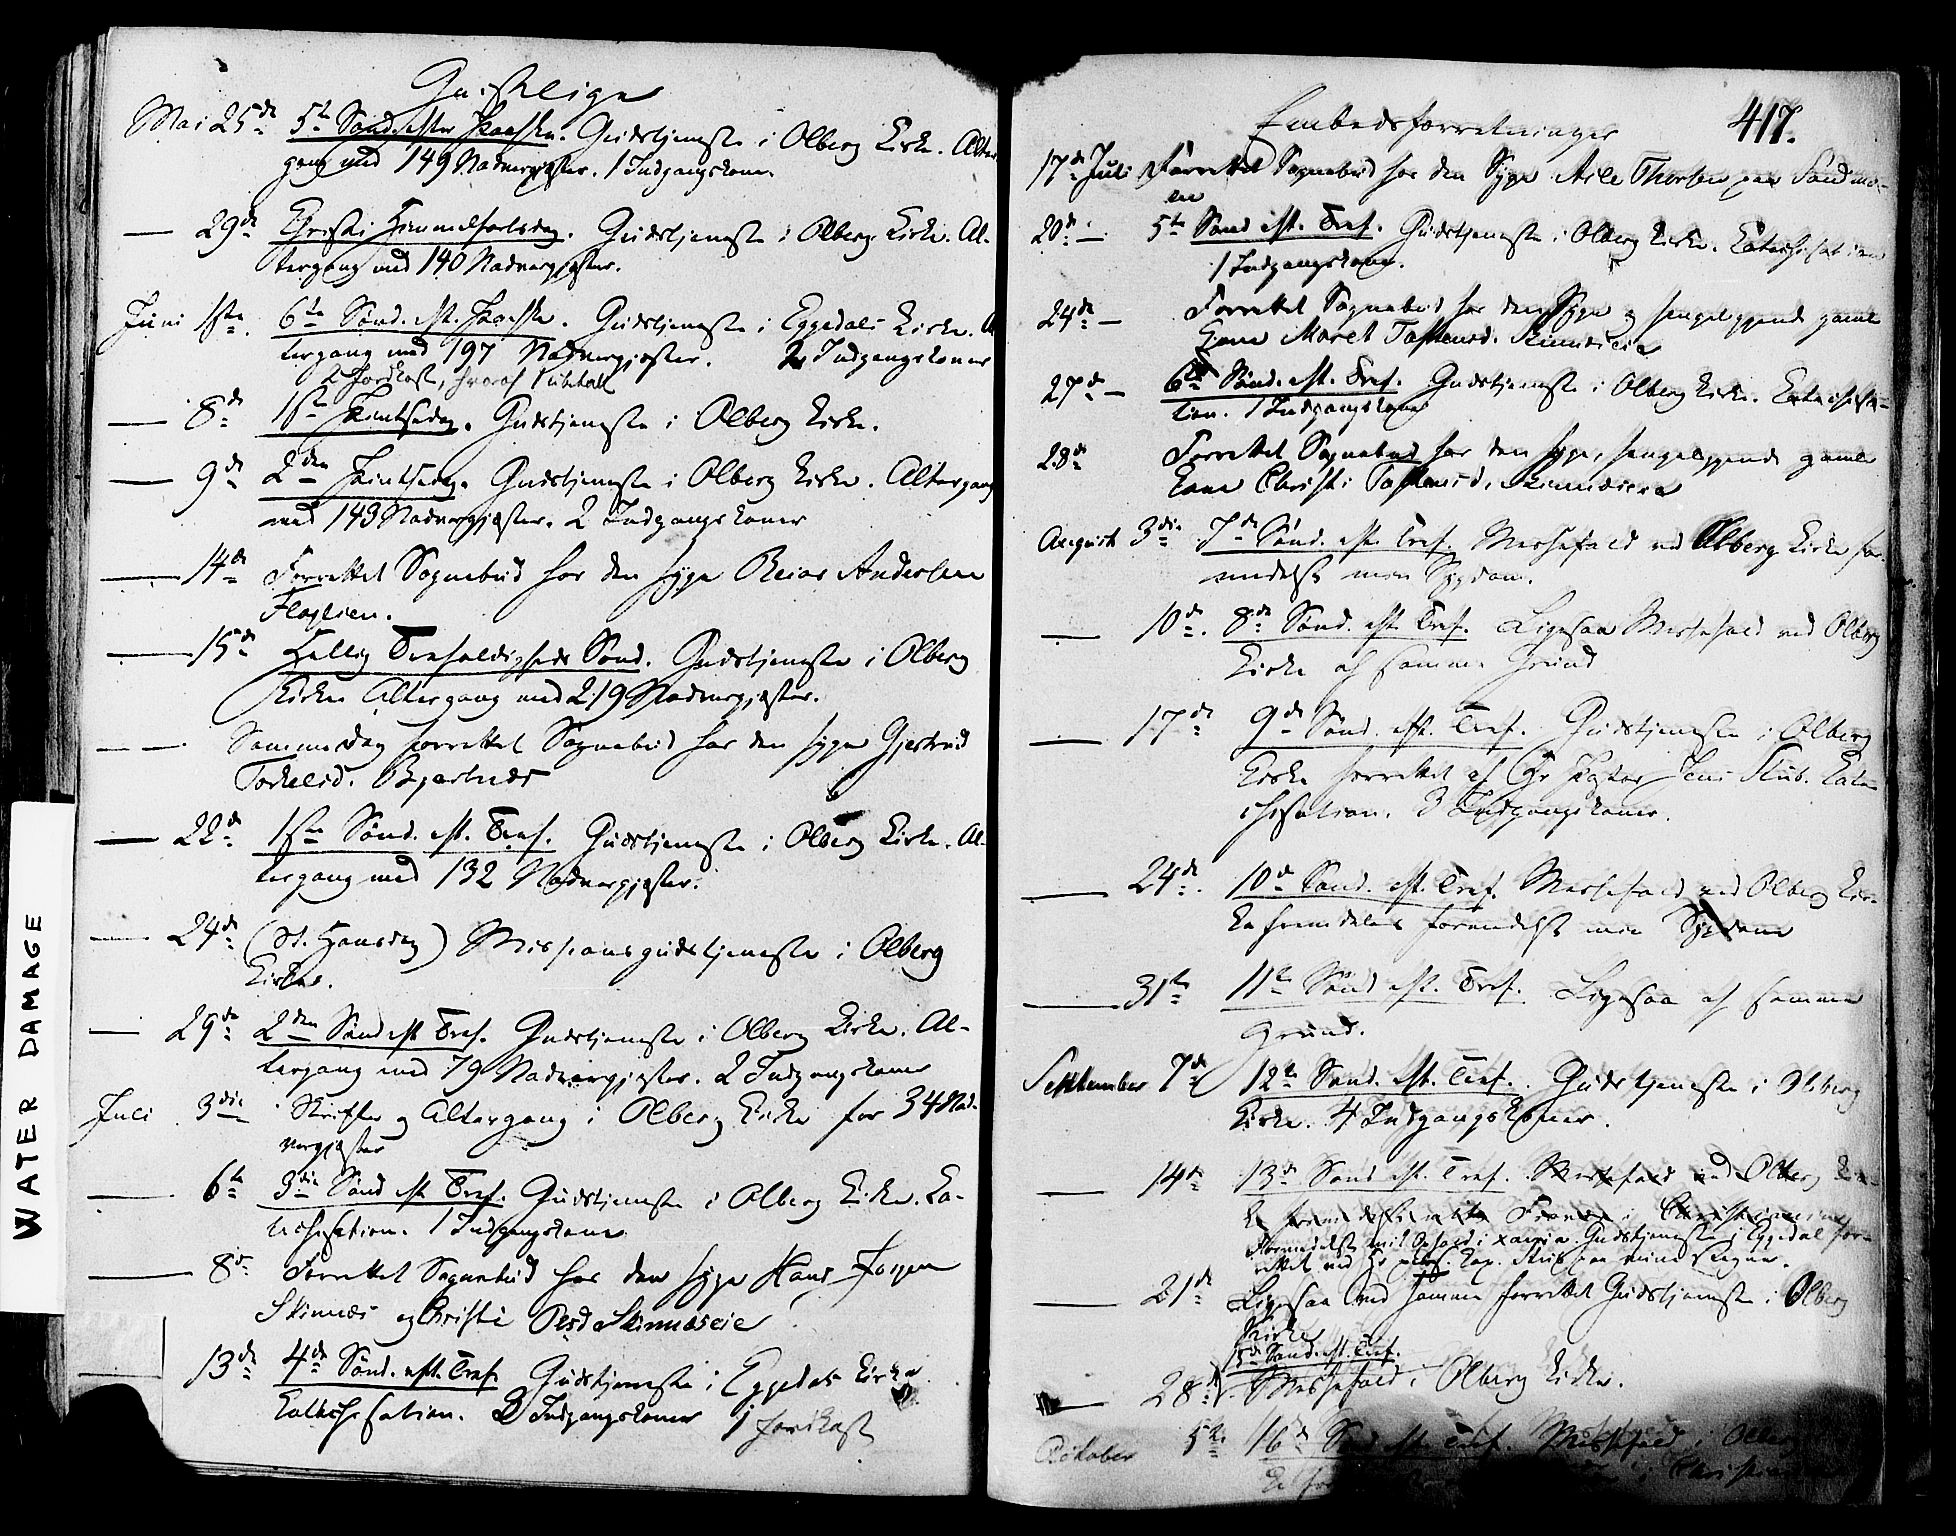 Geistlige
Mai 25de 5te Sønd. efter Paaske. Gudstjeneste i Olberg Kirke. Alter
gang med 149 Nadvergjæster. 1 Indgangskone.
— 29de Christi Himmelfartsdag. Gudstjeneste i Olberg Kirke. Al-
tergang med 140 Nadvergjæster.
Juni 1ste 6te Sønd. eft. Paaske. Gudstjeneste i Eggedals Kirke. Al
tergang med 197 Nadvergjæster. 2 Indgangskoner
2 Jordkast, hvoraf 1
— 8de 1ste Pintsedag. Gudstjeneste i Olberg Kirke.
— 9de 2den Pintsedag. Gudstjeneste i Olberg Kirke. Altergang
med 143 Nadvergjæster. 2 Indgangskoner
— 14de Forrettet Sognebud hos den syge Reiar Andersen
Flaglien.
— 15de Hellig Trefoldigheds Sønd. Gudstjeneste i Olberg
Kirke Altergang med 219 Nadvergjæster.
— — Sammesdag forrettet Sognebud hos den syge Gjertrud
Torkelsd. Bjertnæs
— 22de 1ste Sønd. eft. Tref. Gudstjeneste i Olberg Kirke. Al-
tergang med 132 Nadvergjæster.
— 24de (St. Hansdag) Missionsgudstjeneste i Olberg
Kirke.
— 29de 2den Sønd eft Tref. Gudstjeneste i Olberg Kirke. Al-
tergang med 79 Nadvergjæster. 2 Indgangskoner
Juli 3die Skrifte og Altergang i Olberg Kirke for 34 Nad-
vergjæster
— 6te 3die Sønd eft Tref. Gudstjeneste i Olberg Kirke. Ca-
techisation. 1 Indgangskone
— 8de Forrettet Sognebud hos den syge Hans Jørgen
Skinnæs og Christi Persd. Skinnæseie
13de 4de Sønd. eft. Tref. Gudstjeneste i Eggedal Kirke
Katechisation. 2 Indgangskoner 1 Jordkast
WATER DAMAGE
Embedsforretninger 417.
17de Juli Forrettet Sognebud hos den Syge Asle Thorsen paa Sandmo-
en
20de — 5te Sønd eft. Tref. Gudstjeneste i Olberg Kirke. Katechisation
1 Indgangskone.
24de — Forrettet Sognebud hos den Syge og sengeliggende gamle
Kone Maret Tostensd. Skinnæseie
27de — 6te Sønd. eft. Tref. Gudstjeneste i Olberg Kirke. Katechisa-
tion. 1 Indgangskone
28de Forrettet Sognebud hos den syge, sengeliggende gamle
Kone Christi Tostensd. Skinnæseie
August 3die 7de Sønd. eft. Tref. Messefald ved Olberg Kirke for-
medelst min Sygdom.
— 10de. 8de Sønd. eft. Tref. Ligesaa Messefald ved Olberg
Kirke af samme Grund
— 17de 9de Sønd. eft. Tref. Gudstjeneste i Olberg
Kirke forrettet af Hr Pastor Jens Stub. Kate-
chisation. 3 Indgangskoner.
— 24de. 10de Sønd. eft. Tref. Messefald ved Olberg Kir-
ke fremdeles formedelst min Sygdom
— 31te 11te Sønd eft. Tref. Ligesaa af samme
Grund.
September 7de 12te Sønd. eft. Tref. Gudstjeneste i Olberg
Kirke. 4 Indgangskoner.
— 14de 13de Sønd eft. Tref. Messefald ved Olberg Kir-
ke
Formedelst mit Ophold i Xania. Gudstjeneste i Eggedal for-
rettet ved Hr pers. Cap. Stub paa mine Vegne.
— 21de Ligesaa ved samme forrettet Gudstjeneste i Olberg
Kirke
15de Sønd. eft. Tref.
— 28de Messefald i Olberg Kirke.
Oktober 5te 16de Sønd. eft. Tref. Messefald i Olberg
i Christiania